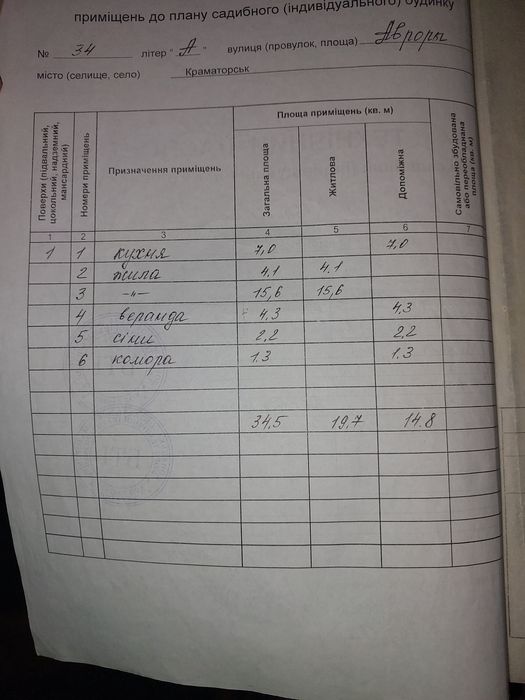 приміщень до плану садибного (індивідуального) будинку
№ 34 літер "А" вулиця (провулок, площа) Авроры
місто (селище, село) Краматорськ
Поверхи (підвальний, цокольний, надземний, мансардний) Номери приміщень Призначення приміщень Площа приміщень (кв. м) Самовільно збудована або переобладнана площа (кв. м)
Загальна площа Житлова Допоміжна
1 2 3 4 5 6 7
1 1 кухня 7,0 7,0
2 жила 4.1 4.1
3 -"- 15,6 15,6
4 веранда 4.3 4,3
5 сіни 2,2 2,2
6 комора 1.3 1.3
34,5 19,7 14.8